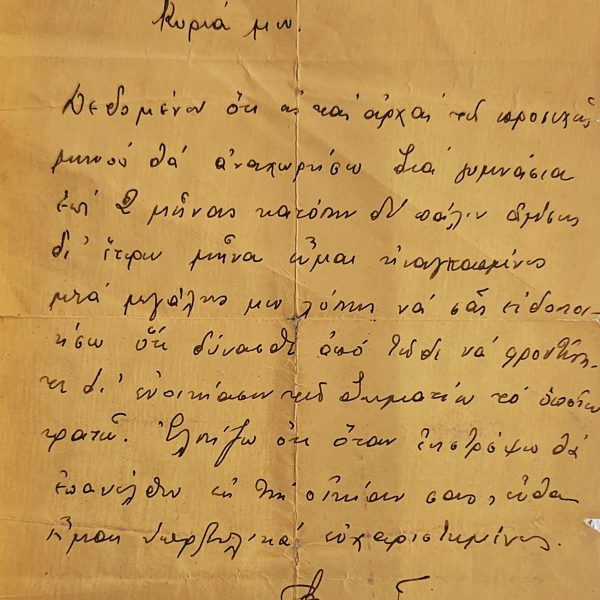 Κυρία μου.
Δεδομένου ὅτι εἰς τὰς ἀρχὰς τοῦ προσεχοῦς
μηνός θά ἀναχωρήσω διά γυμνάσια
ἐπί 2 μῆνας κατόπιν δέ πάλιν
δι' ἕτερον μῆνα εἶμαι ἠναγκασμένος
μετά μεγάλης μου λύπης νά σᾶς εἰδοποι-
ήσω ὅτι δύνασθε ἀπό τοῦδε νά φροντίση-
τε δι' ἐνοικίασιν τοῦ δωματίου τό ὁποῖον
κρατῶ. Ἐλπίζω ὅτι ὅταν ἐπιστρέψω θά
ἐπανέλθω εἰς τήν οἰκίαν σας, ἔνθα
ἤμουν ὑπερβολικά εὐχαριστημένος.